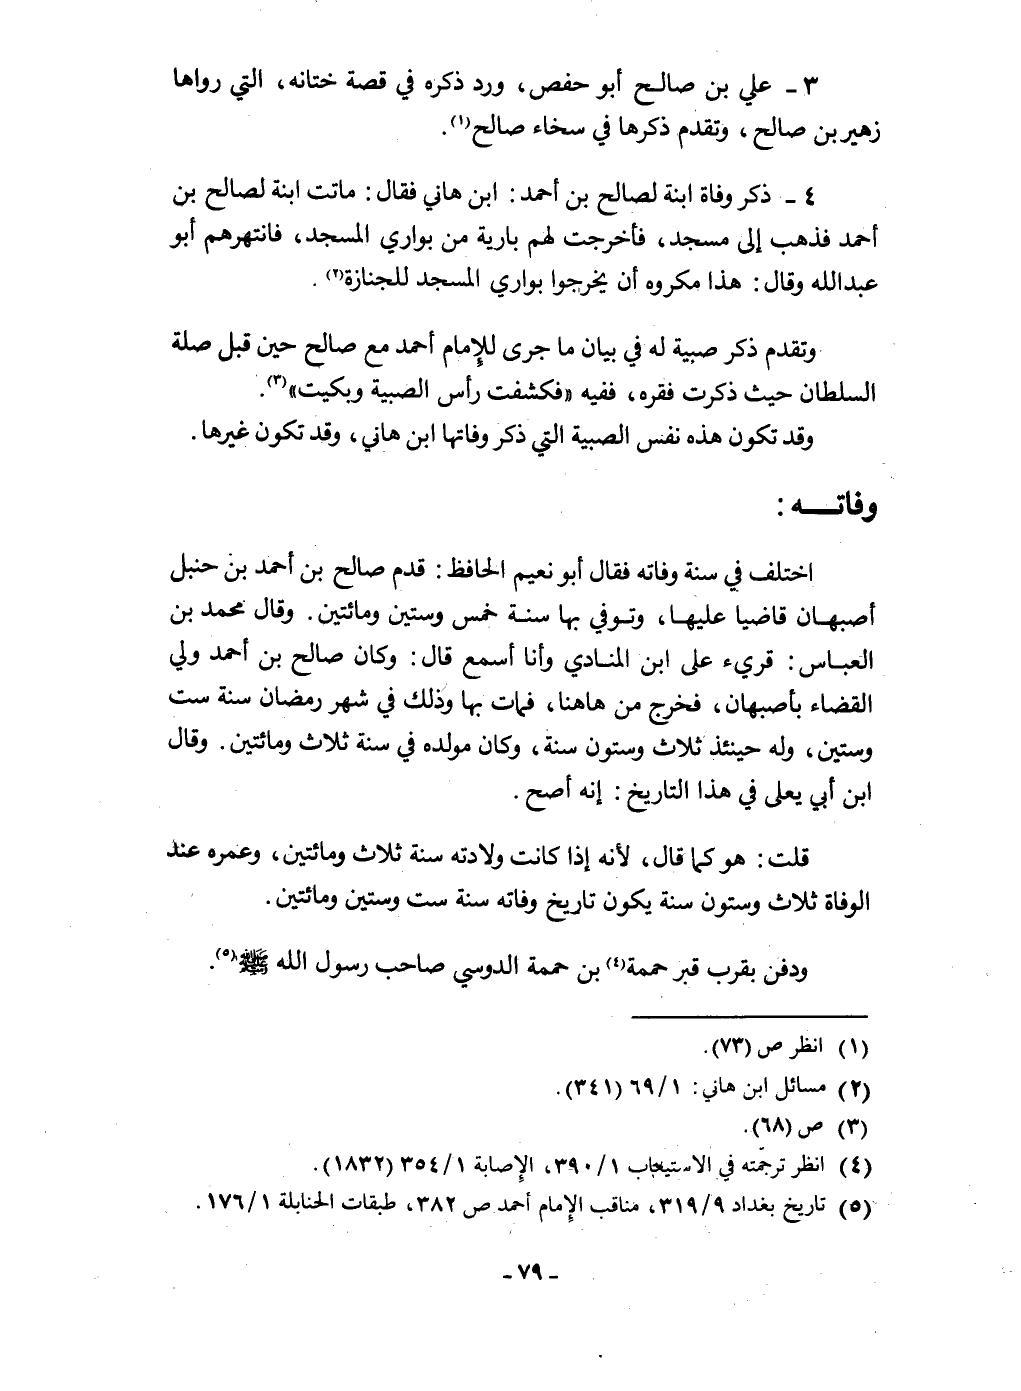 ٣ ـ علي بن صالح أبو حفص، ورد ذكره في قصة ختانه، التي رواها
زهير بن صالح، وتقدم ذكرها في سخاء صالح(١).
٤ ـ ذكر وفاة ابنة لصالح بن أحمد: ابن هاني فقال: ماتت ابنة لصالح بن
أحمد فذهب إلى مسجد، فأخرجت لهم بارية من بواري المسجد، فانتهرهم أبو
عبدالله وقال: هذا مكروه أن يخرجوا بواري المسجد للجنازة(٢).
وتقدم ذكر صبية له في بيان ما جرى للإمام أحمد مع صالح حين قبل صلة
السلطان حيث ذكرت فقره، ففيه «فكشفت رأس الصبية وبكيت»(٣).
وقد تكون هذه نفس الصبية التي ذكر وفاتها ابن هاني، وقد تكون غيرها.
وفاتـــه:
اختلف في سنة وفاته فقال أبو نعيم الحافظ: قدم صالح بن أحمد بن حنبل
أصبهان قاضيا عليها، وتوفي بها سنة خمس وستين ومائتين. وقال محمد بن
العباس: قريء على ابن المنادي وأنا أسمع قال: وكان صالح بن أحمد ولي
القضاء بأصبهان، فخرج من هاهنا، فمات بها وذلك في شهر رمضان سنة ست
وستين، وله حينئذ ثلاث وستون سنة، وكان مولده في سنة ثلاث ومائتين. وقال
ابن أبي يعلى في هذا التاريخ: إنه أصح.
قلت: هو كما قال، لأنه إذا كانت ولادته سنة ثلاث ومائتين، وعمره عند
الوفاة ثلاث وستون سنة يكون تاريخ وفاته سنة ست وستين ومائتين.
ودفن بقرب قبر حممة(٤) بن حممة الدوسي صاحب رسول الله ﷺ(٥).
(١) انظر ص (٧٣).
(٢) مسائل ابن هاني: ٦٩/١ (٣٤١).
(٣) ص (٦٨).
(٤) انظر ترجمته في الاستيعاب ٣٩٠/١، الإصابة ٣٥٤/١ (١٨٣٢).
(٥) تاريخ بغداد ٣١٩/٩، مناقب الإمام أحمد ص ٣٨٢، طبقات الحنابلة ١٧٦/١.
ـ ٧٩ ـ